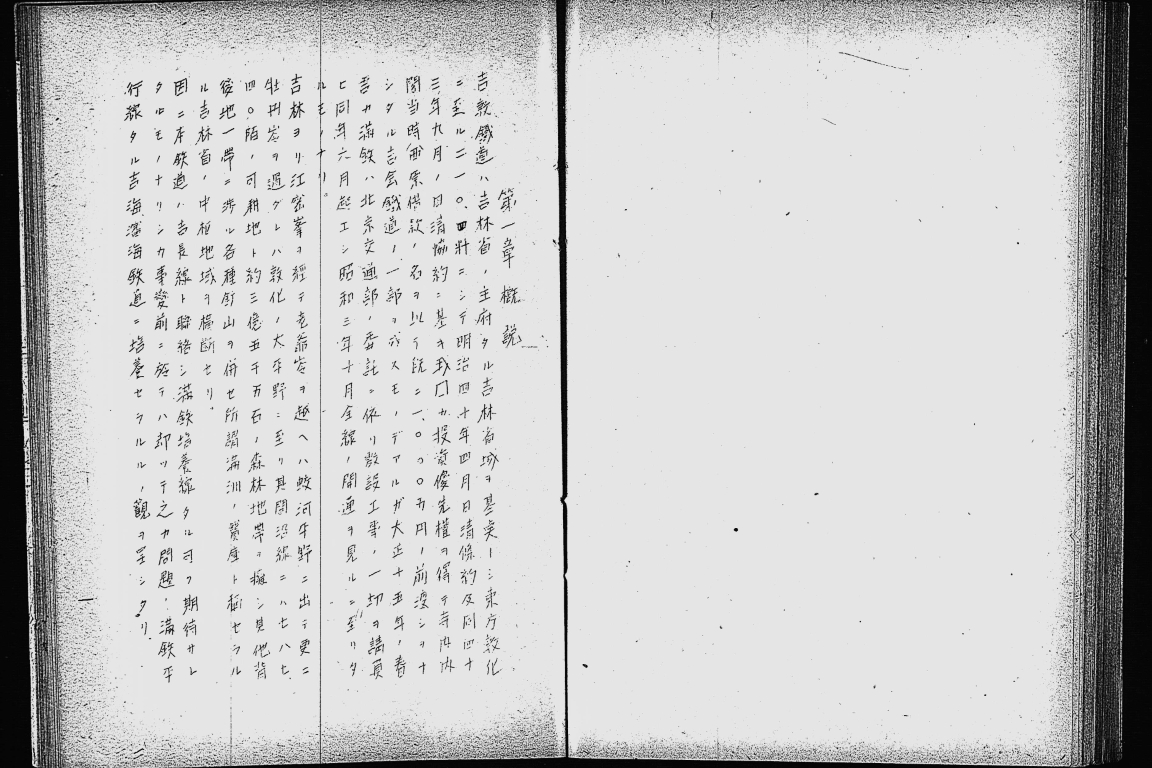 第一章 概説
吉敦鐵道ハ吉林省ノ主府タル吉林省城ヲ基点トシ東方敦化
ニ至ル二一〇.四粁ニシテ明治四十年四月日清條約及同四十
三年九月ノ日清協約ニ基キ我国カ投資優先権ヲ得テ寺内内
閣当時西原借款ノ名ヲ以テ既ニ一、〇〇〇万円ノ前渡シヲナ
シタル吉会鐵道ノ一部ヲ成スモノデアルガ大正十五年ノ春
吾カ満鉄ハ北京交通部ノ委託ニ依リ敷設工事ノ一切ヲ請負
ヒ同年六月起工シ昭和三年十月全線ノ開通ヲ見ルニ至リタ
ルモノナリ。
吉林ヨリ江密峯ヲ経テ老爺嶺ヲ越ヘハ蛟河平野ニ出テ更ニ
牡丹嶺ヲ過グレハ敦化ノ大平野ニ至リ其間沿線ニハ七八七
四〇陌ノ可耕地ト約三億五千万石ノ森林地帯ヲ擁シ其他背
後地一帯ニ渉ル各種鉱山ヲ併セ所謂満洲ノ寶庫ト称セラル
ル吉林省ノ中枢地域ヲ横断セリ。
因ニ本鉄道ハ吉長線ト聯絡シ満鉄培養線タル可ク期待サレ
タルモノナリシカ事変前ニ於テハ却ツテ之カ問題ノ満鉄平
行線タル吉海瀋海鉄道ニ培養セラルルノ観ヲ呈シタリ。